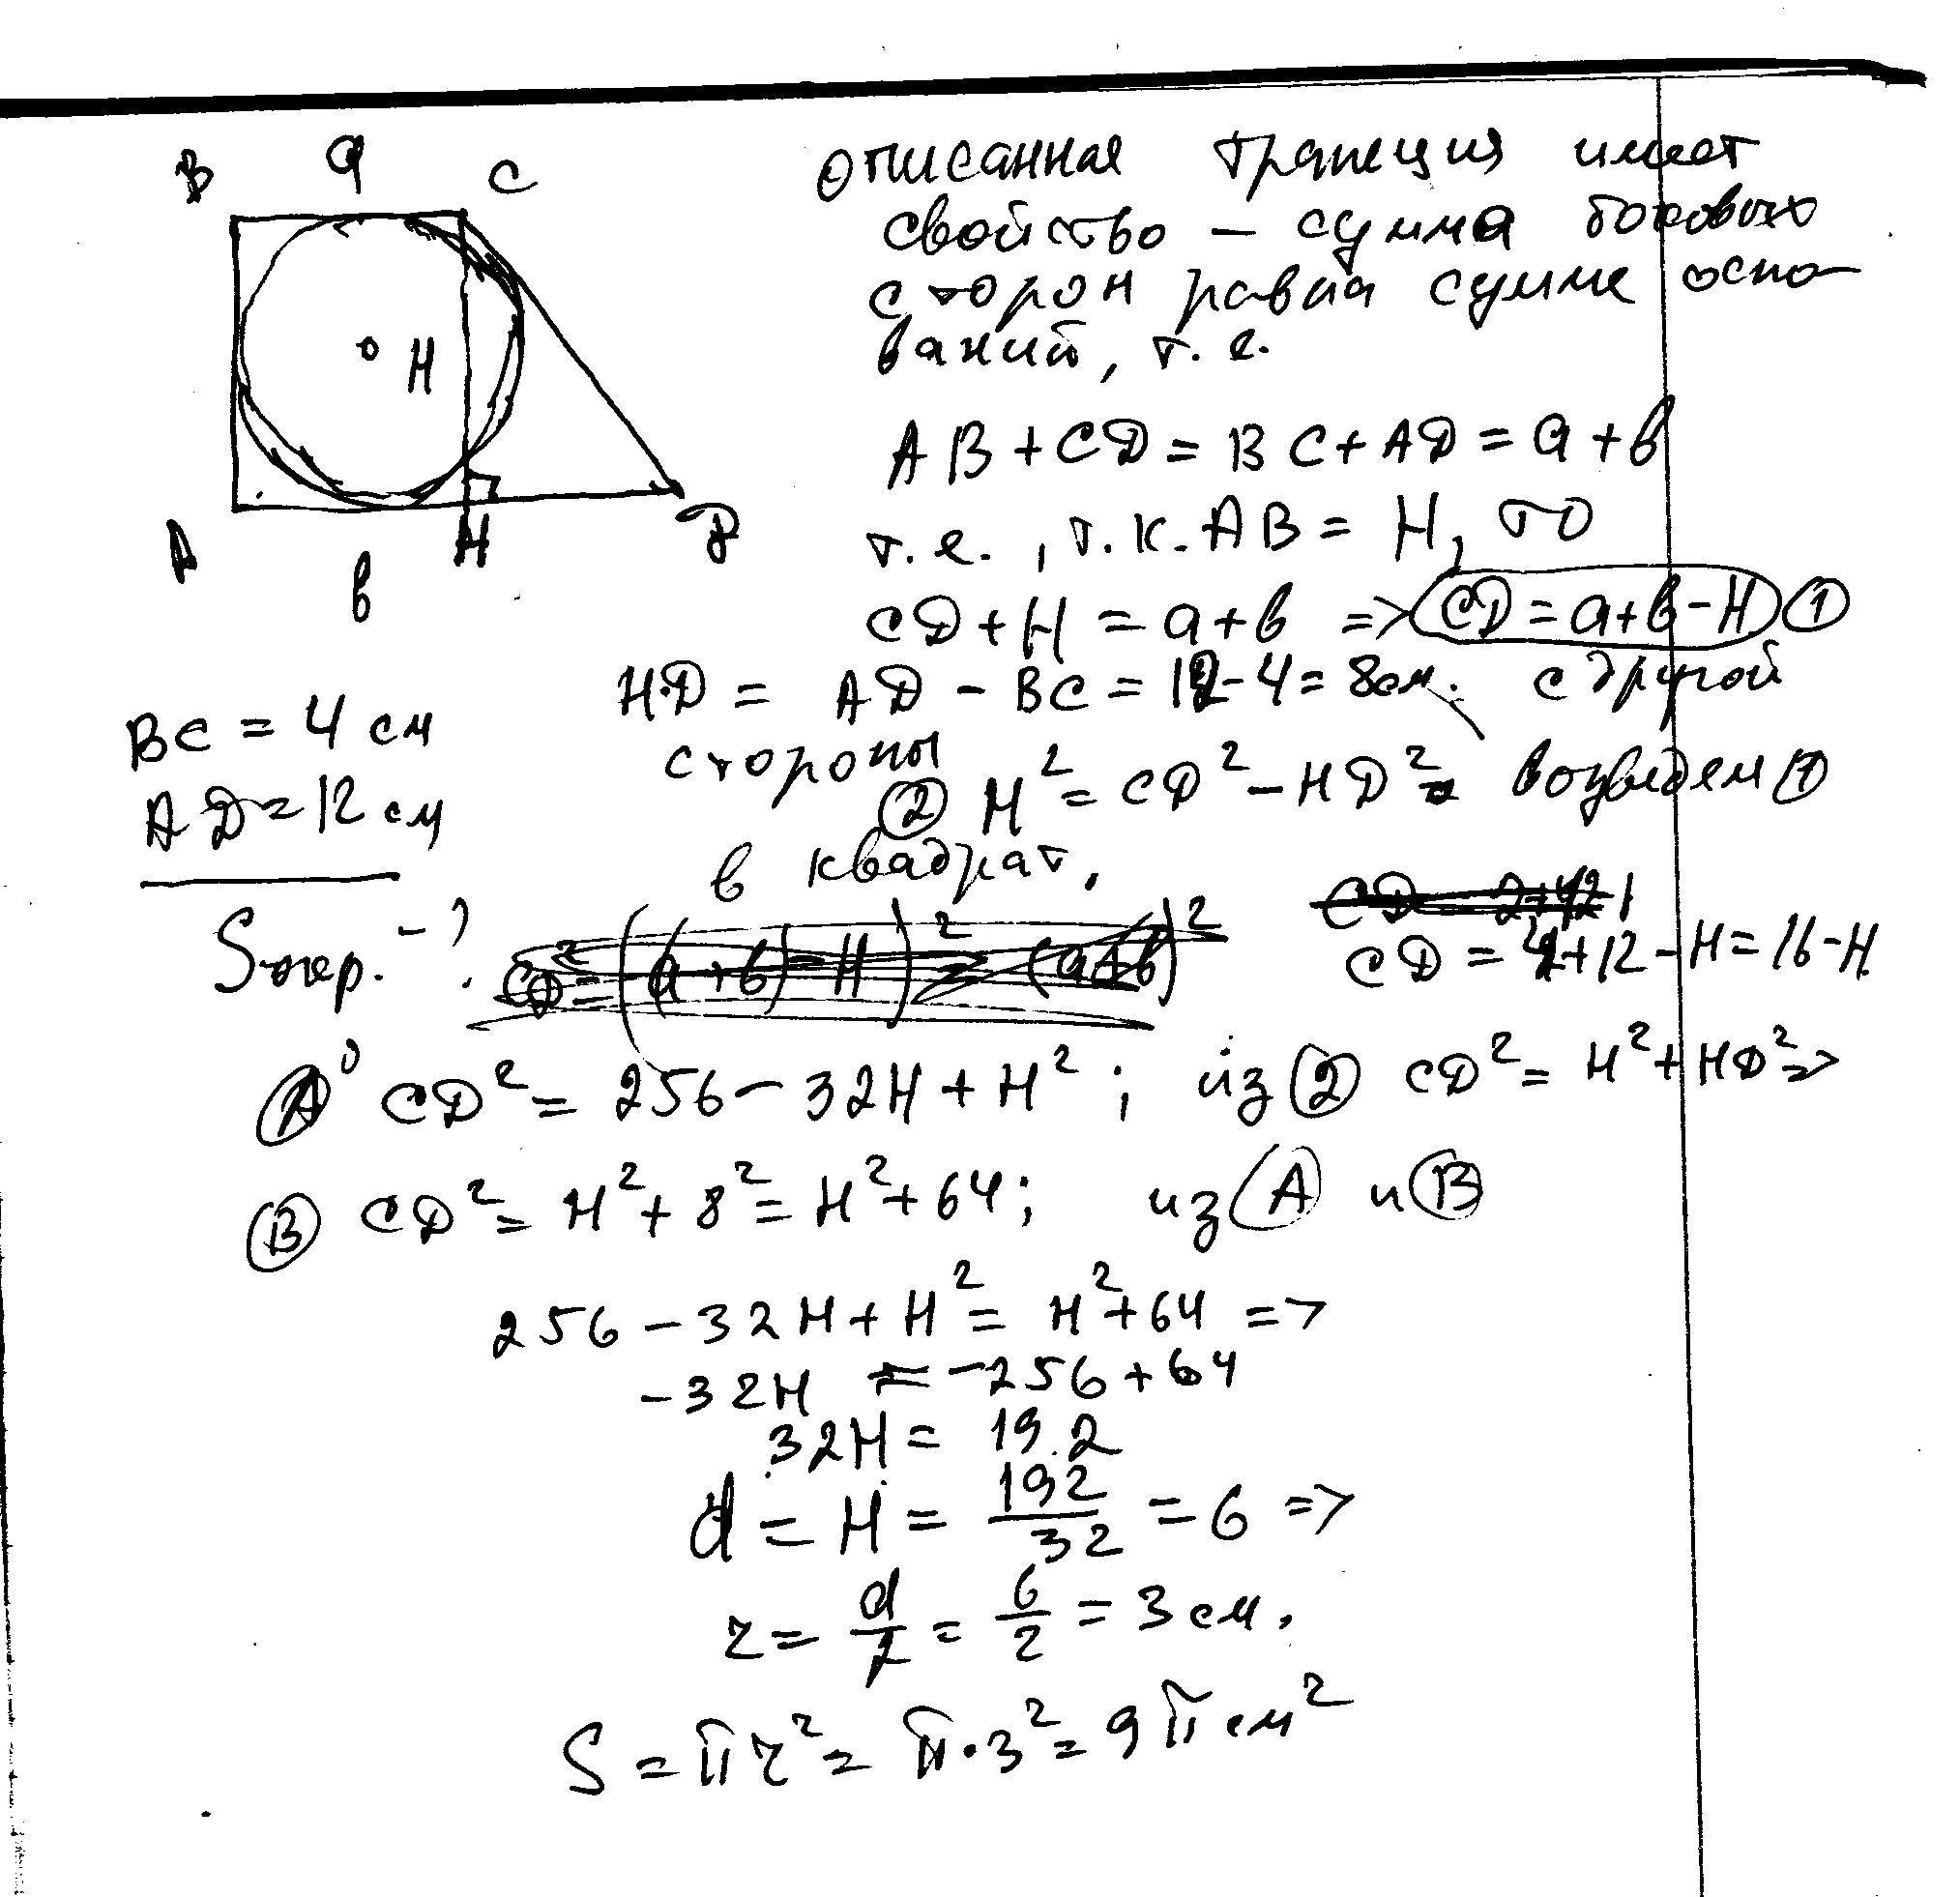 B a C
описанная трапеция имеет
свойство – сумма боковых
сторон равна сумме осно-
ваний, т. е.
o H
AB + CD = BC + AD = a + b
A H D
b
т.е., т.к. AB = H, то
CD + H = a + b => CD = a + b - H ①
HD = AD - BC = 12 - 4 = 8 см. с другой
BC = 4 см
стороны
② H² = CD² - HD² возведем ①
AD = 12 см
в квадрат,
S - ?
CD = 4 + 12 - H = 16 - H
Ⓐ CD² = 256 - 32H + H² ; из ② CD² = H² + HD² =>
Ⓑ CD² = H² + 8² = H² + 64; из Ⓐ и Ⓑ
256 - 32H + H² = H² + 64 =>
-32H = -256 + 64
32H = 192
d = H = 192/32 = 6 =>
r = d/2 = 6/2 = 3 см.
S = πr² = π·3² = 9π см²